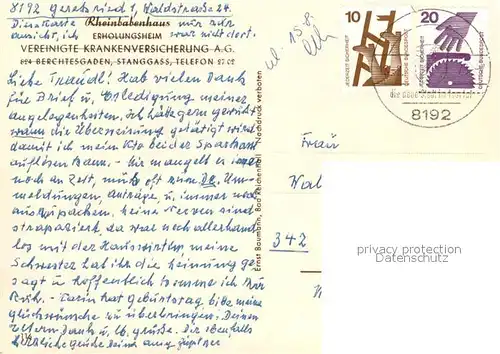 8192 Geretsried 1, Waldstraße 24.
Diese Karte Rheinbabenhaus nur zur
ansicht, ich ERHOLUNGSHEIM war nicht dort.
VEREINIGTE KRANKENVERSICHERUNG A.G.
824 BERCHTESGADEN, STANGGASS, TELEFON 27 02
Liebe Traudl! Hab vielen Dank
für Brief u. Erledigung meiner
angelegenheiten, ich hätte gern gewußt
wann die Überweisung getätigt wird
damit ich mein Kto bei der Sparkasse
auflösen kann. - Mir mangelt es immer
noch an Zeit, muß oft
meldungen, Anträge u. immer noch
auszupacken, keine Nerven sind
strapaziert, da war noch allerhand
los mit der Hauswirtin meine
Schwester hat ihr die Meinung ge-
sagt u. hoffentlich komme ich zur
Ruh. - Karin hat Geburtstag, bitte meine
Glückwünsche zu überbringen. Deinen
Eltern Dank u. lb. Grüße. Dir ebenfalls
herzliche Grüße Deine
Ernst Baumann, Bad Reichenhall Nachdruck verboten
10
20
JEDERZEIT SICHERHEIT
DEUTSCHE BUNDESPOST
8192
Frau
Wal
342
privacy protection
Datenschutz